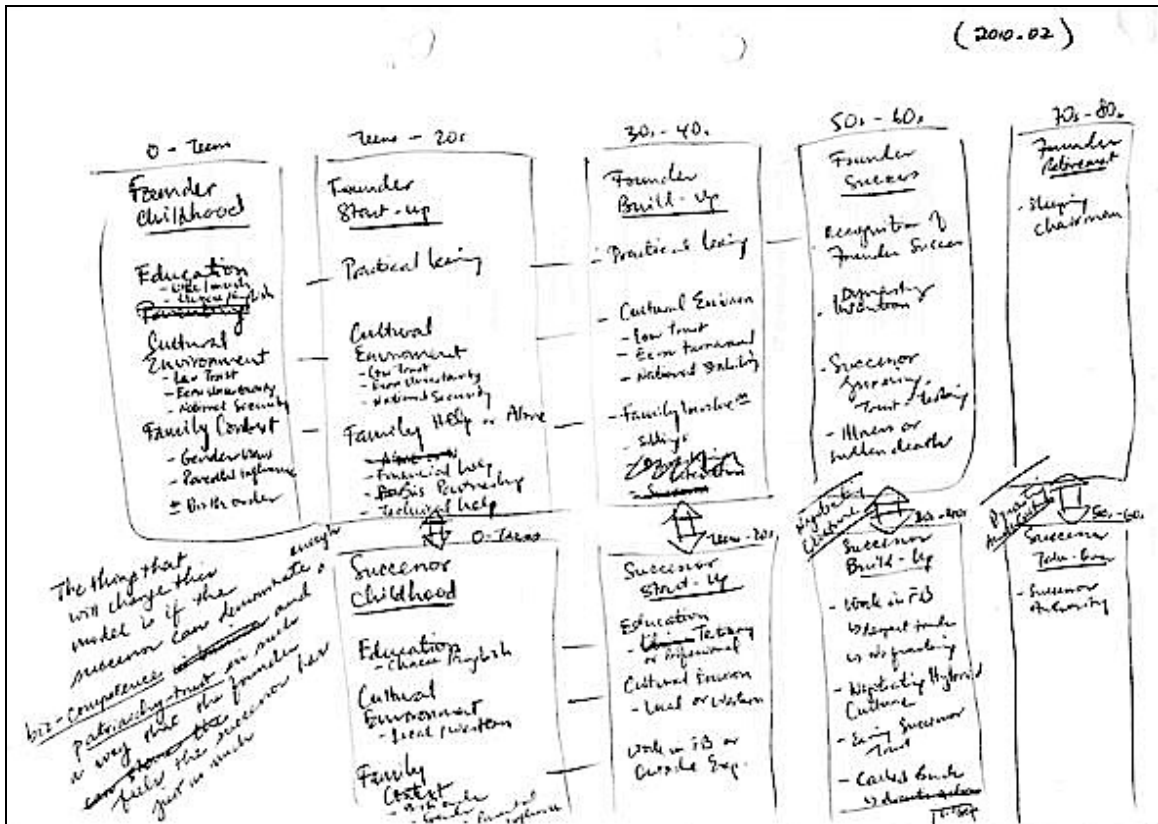 (2010.02)
0 - Teens
Founder
Childhood
Education
Cultural
Environment
- Low Trust
- Econ Uncertainty
- National Security
Family Context
- Gender
- Parental Influence
- Birth order
Teens - 20s
Founder
Start-up
Practical
Cultural
Enviroment
- Low Trust
- Econ Uncertainty
- National Security
Family Help or Alone
- Financial help
Partnership
- Technical help
30s - 40s
Founder
Build-Up
- Practical
Cultural Environ
- Low Trust
- Econ Turnaround
- National Stability
- Family Involve
- Siblings
50s - 60s
Founder
Success
- Recognition of
Founder Success
- Dynasty
Intention
- Successor
Trust - testing
- Illness or
sudden death
70s - 80s
Founder
Retirement
- Sleeping
Chairman
0-Teens
Successor
Childhood
Education
- Chinese / English
Cultural
Environment
- Local / Western
Family
Context
- Birth order
- Gender
- Parental
Influence
Teens - 20s
Successor
Start-Up
Education
- Tertiary
or Professional
Cultural Environ
- Local or Western
Work in FB or
Outside Exp.
30s - 40s
Successor
Build-Up
- Work in FB
- Negotiating Hybrid
Culture
- Successor
Trust
- Called Back
50s - 60s
Successor
Take-Over
- Successor
Authority
The thing that
will change this
model is if the
successor can demonstrate enough
biz-competence and
patriarchy trust in such
a way that the founder
feels the successor has
just as much